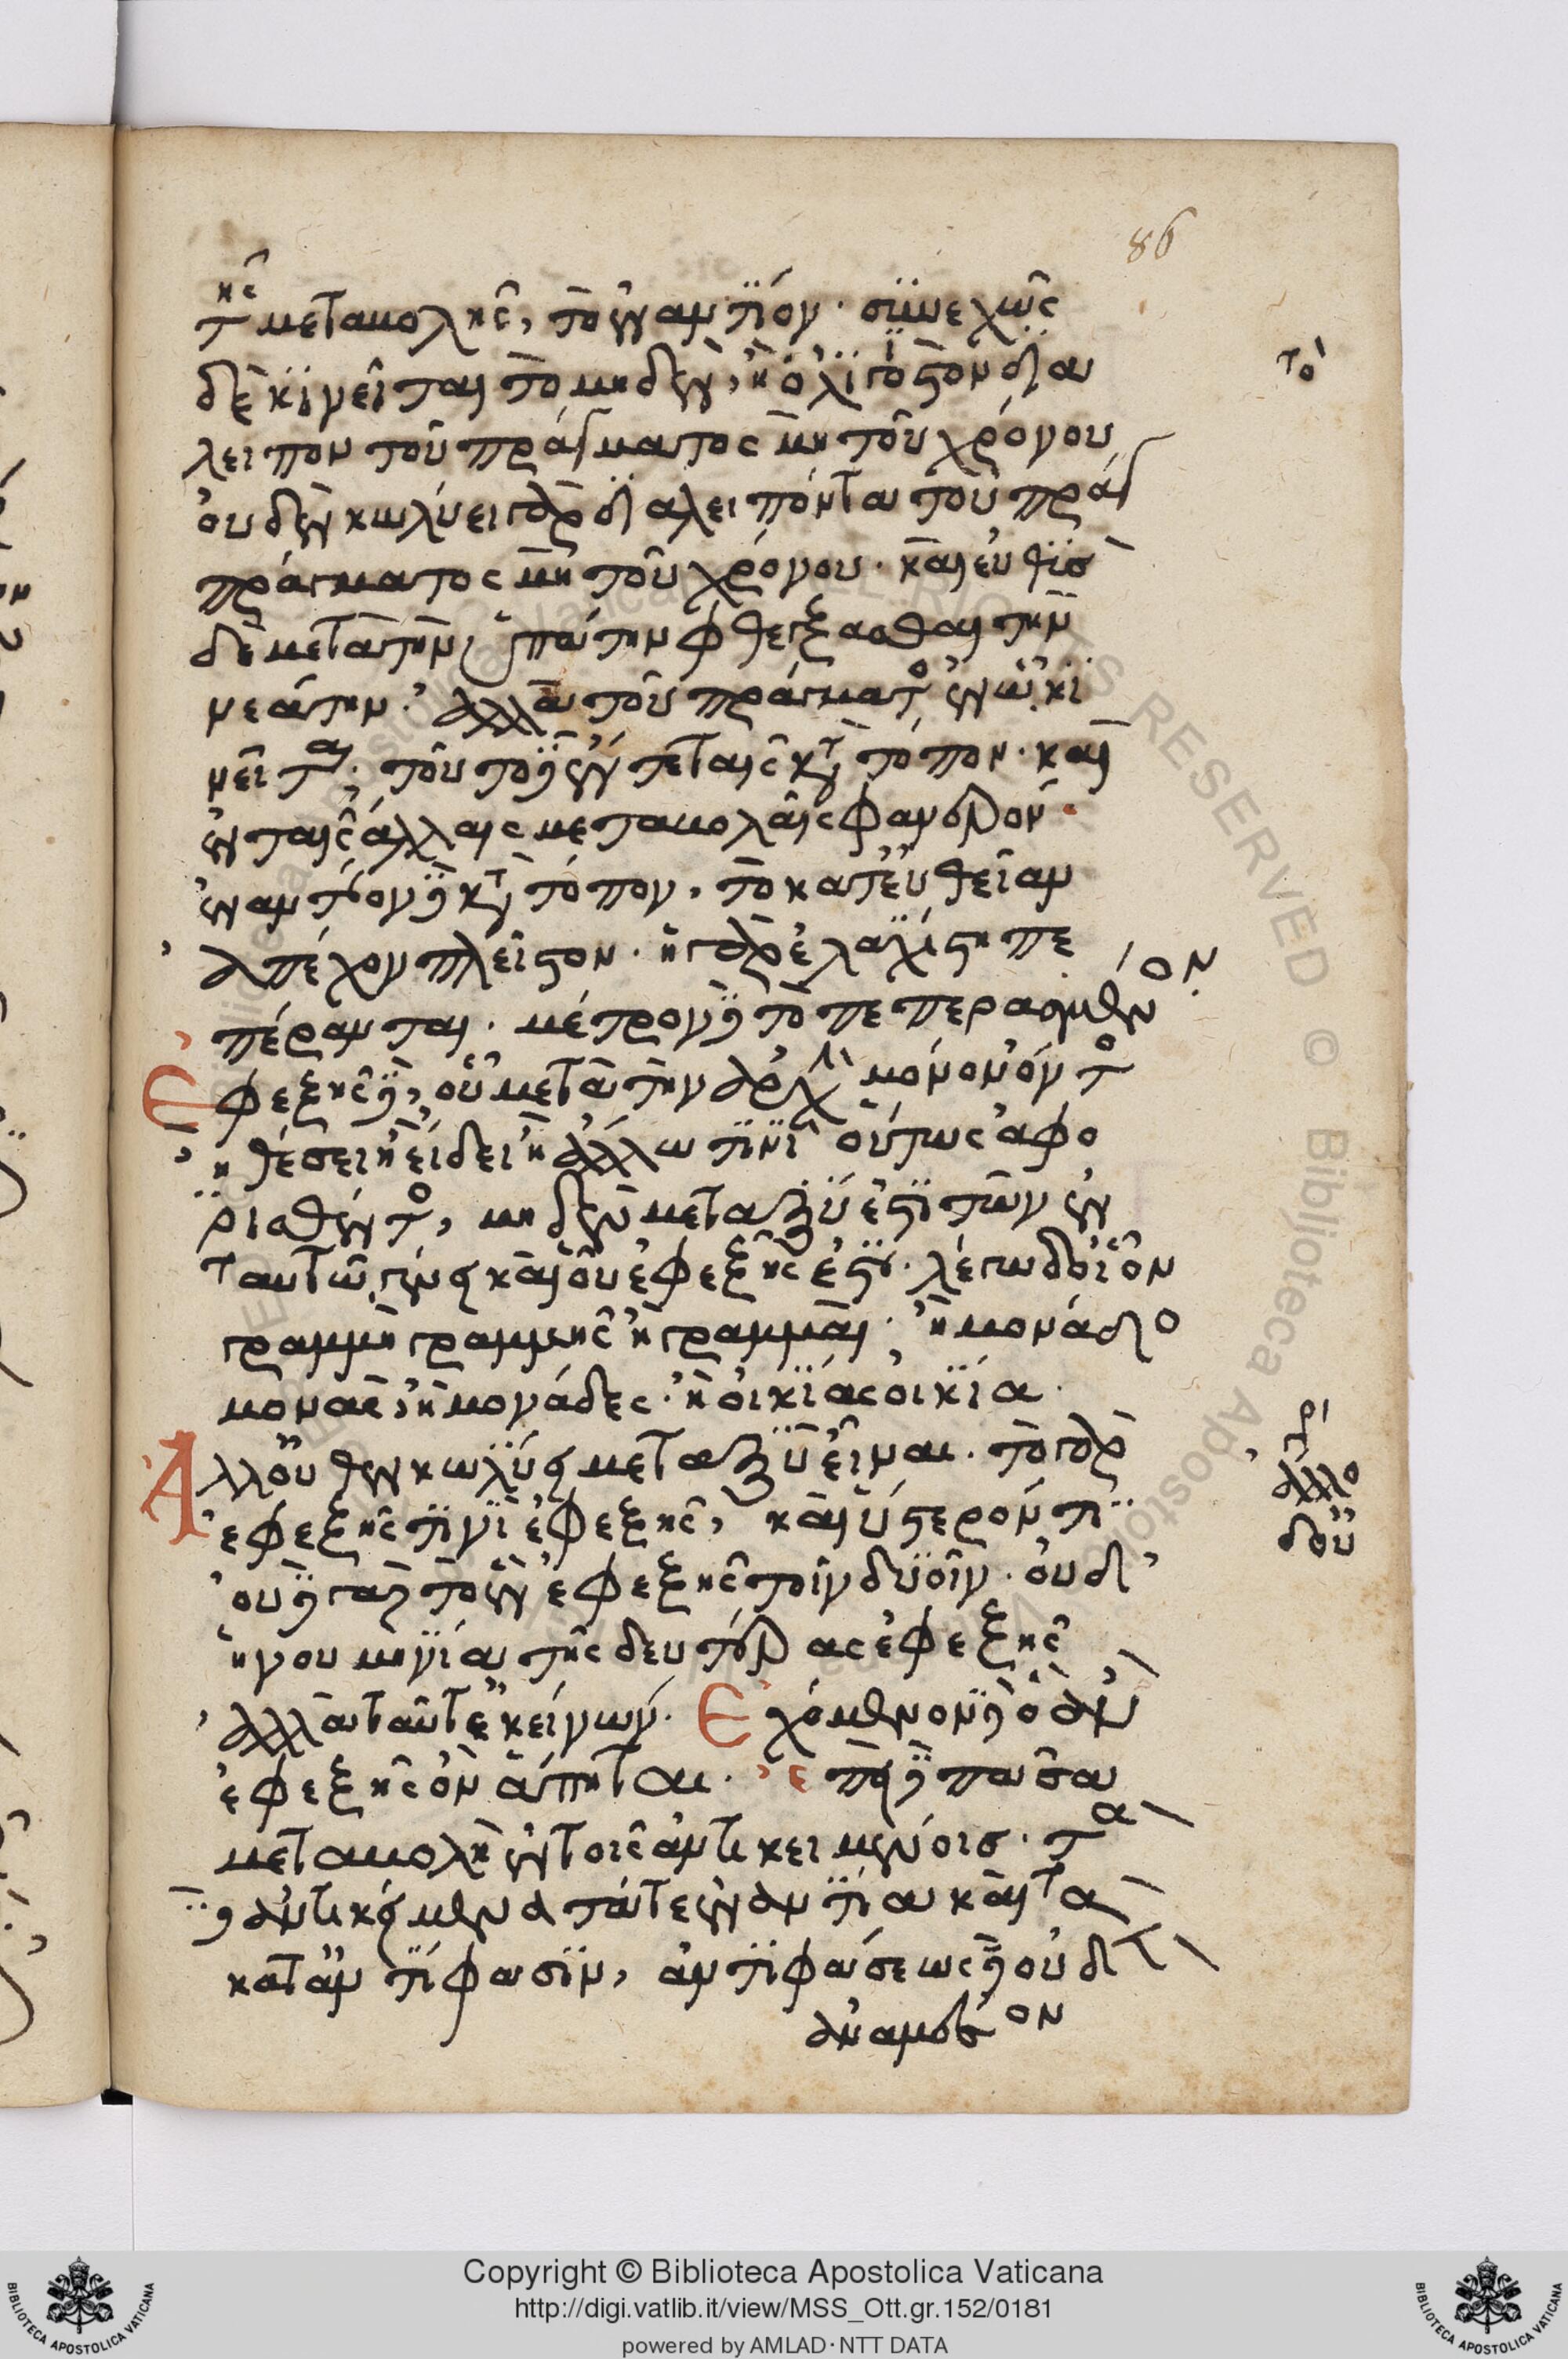 86
τῆς μεταβολῆς, τὸ ἐναντίον. συνεχῶς
δὲ κινεῖται τὸ μηδὲν, ἢ ὀλίγοστον δια
λειπον τοῦ πράγματος μὴ τοῦ χρόνου
οὐδὲν κωλύει γὰρ διαλειπόντα τοῦ πράγ
πράγματος μὴ τοῦ χρόνου. καὶ εὐθὺσ
δὲ μετὰ τὴν ὑπάτην φθέγξασθαι τὴν
νεάτην. ἀλλὰ τοῦ πράγματος ἐν ᾧ κι
νεῖται. τοῦτο δὲ ἔν τε ταῖς κατὰ τόπον. καὶ
ἐν ταῖς ἄλλαις μεταβολαῖς φανερόν.
ἐναντίον δὲ κατὰ τόπον, τὸ κατ' εὐθεῖαν
ἀπέχον πλεῖστον. ἡ γὰρ ἐλαχίστη πε
πέρανται. μέτρον δὲ τὸ πεπερασμένον
Ἐφεξῆς δὲ, οὗ μετὰ τὴν ἀρχὴν μόνον ὄντος
ἢ θέσει ἢ εἴδει ἢ ἄλλω τινὶ οὕτως ἀφο
ρισθέντος, μηδὲν μεταξύ ἐστι τῶν ἐν
ταυτῶ γένει καὶ οὗ ἐφεξῆς ἐστιν. λέγω δ' οἷον
γραμμὴ γραμμῆς ἢ γραμμαὶ. ἢ μονάδο
μονὰς, ἢ μονάδες. ἢ οἰκίας οἰκία.
Ἀλλ' οὐθὲν κωλύει μεταξὺ εἶναι. τὸ γὰρ
ἐφεξῆς τινὶ ἐφεξῆς, καὶ ὕστερόν τι
οὐ γὰρ τὸ ἓν ἐφεξῆς τοῖν δυοῖν. οὐδ'
ἡ νουμηνία τῆς δευτέρας ἐφεξῆς
ἀλλὰ ταῦτ' ἐκείνων. Ἐχόμενον δὲ ὃ ἂν
ἐφεξῆς ὂν ἅπτηται. ἐπεὶ δὲ πᾶσα
μεταβολὴ ἐν τοῖς ἀντικειμένοισ. τὰ
δ' ἀντικείμενα τά τε ἐναντία καὶ τὰ
κατ' ἀντίφασιν, ἀντιφάσεως δ' οὐδὲν
ἀναμέσον
τό
ἄλλο
δου
Copyright © Biblioteca Apostolica Vaticana
http://digi.vatlib.it/view/MSS_Ott.gr.152/0181
powered by AMLAD·NTT DATA